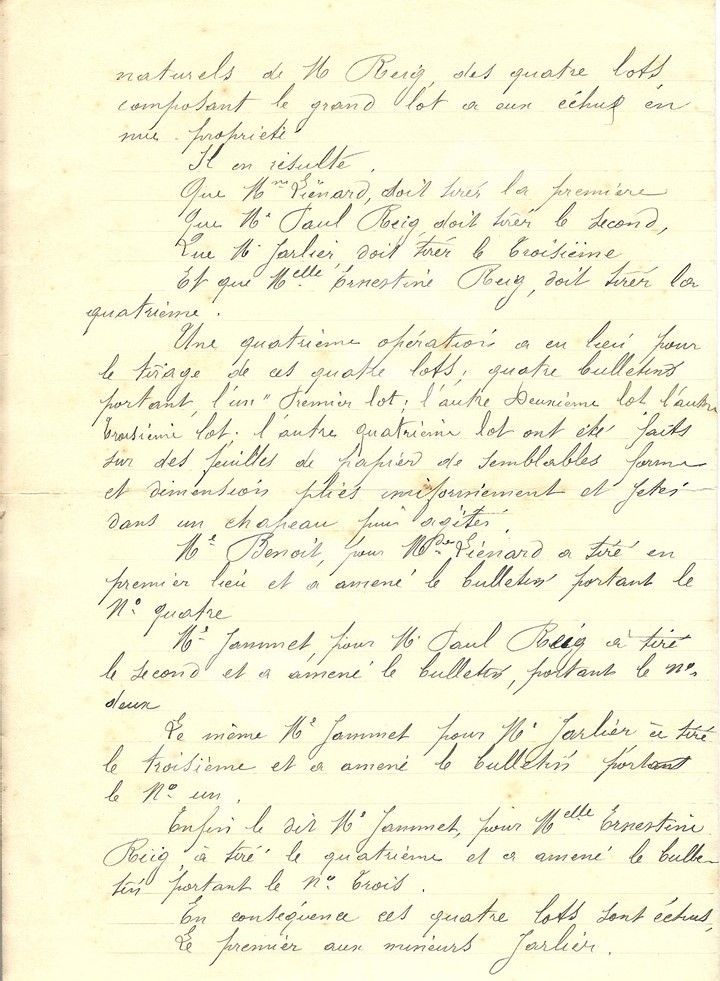 naturels de M Reig, des quatre lots
composant le grand lot a eux échus en
nue propriété
Il en résulte.
Que Mme Liénard, doit tirer la première
Que Mr Paul Reig, doit tirer le second,
Que Mr Jarlier, doit tirer le troisième
Et que Melle Ernestine Reig, doit tirer la
quatrième.
Une quatrième opération a eu lieu pour
le tirage de ces quatre lots; quatre bulletins
portant, l'un " Premier lot; l'autre Deuxième lot l'autre
Troisième lot; l'autre quatrième lot ont été faits
sur des feuilles de papier de semblables forme
et dimension pliés uniformément et jetés
dans un chapeau puis agités.
Me Benoit, pour Mde Liénard a tiré en
premier lieu et a amené le bulletin portant le
No quatre
Me Jammet, pour Mr Paul Reig a tiré
le second et a amené le bulletin, portant le no
deux
Le même Me Jammet pour Mr Jarlier a tiré
le troisième et a amené le bulletin portant
le No un.
Enfin le dit Me Jammet, pour Melle Ernestine
Reig, a tiré le quatrième et a amené le bulle-
tin portant le No Trois.
En conséquence ces quatre lots sont échus,
Le premier aux mineurs Jarlier.